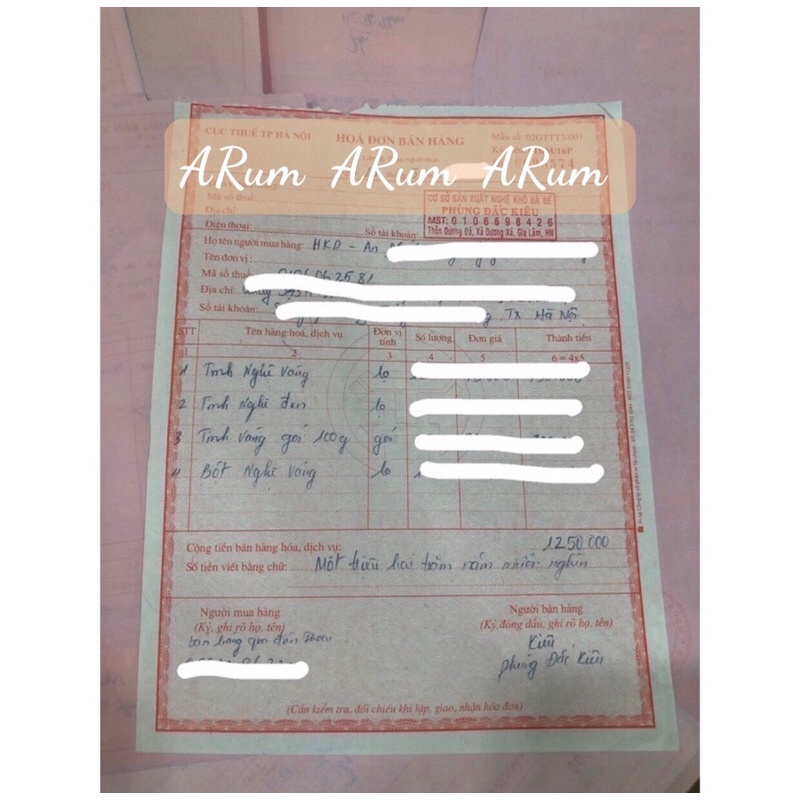 CỤC THUẾ TP HÀ NỘI
HOÁ ĐƠN BÁN HÀNG
Mẫu số: 02GTTT3/001
/16P
574
ARum ARum ARum
Mã số thuế:
Địa chỉ:
Điện thoại:
Số tài khoản:
CƠ SỞ SẢN XUẤT NGHỆ KHÔ BÀ BÉ
PHÙNG ĐẮC KIỀU
MST: 0106698426
Thôn Dương Đá, Xã Dương Xá, Gia Lâm, HN
Họ tên người mua hàng: HKD - An
Tên đơn vị:
Mã số thuế:
Địa chỉ:
Số tài khoản: TP. Hà Nội
STT Tên hàng hoá, dịch vụ Đơn vị tính Số lượng Đơn giá Thành tiền
1 2 3 4 5 6 = 4x5
1 Tinh Nghệ Vàng lọ
2 Tinh Nghệ đen lọ
3 Tinh vàng gói 100g gói
4 Bột Nghệ Vàng lọ
Cộng tiền bán hàng hóa, dịch vụ: 1250.000
Số tiền viết bằng chữ: Một triệu hai trăm năm mươi nghìn
Người mua hàng
(Ký, ghi rõ họ, tên)
bán hàng qua điện thoại
Người bán hàng
(Ký,đóng dấu, ghi rõ họ, tên)
Kiều
Phùng Đắc Kiều
(Cần kiểm tra, đối chiếu khi lập, giao, nhận hóa đơn)